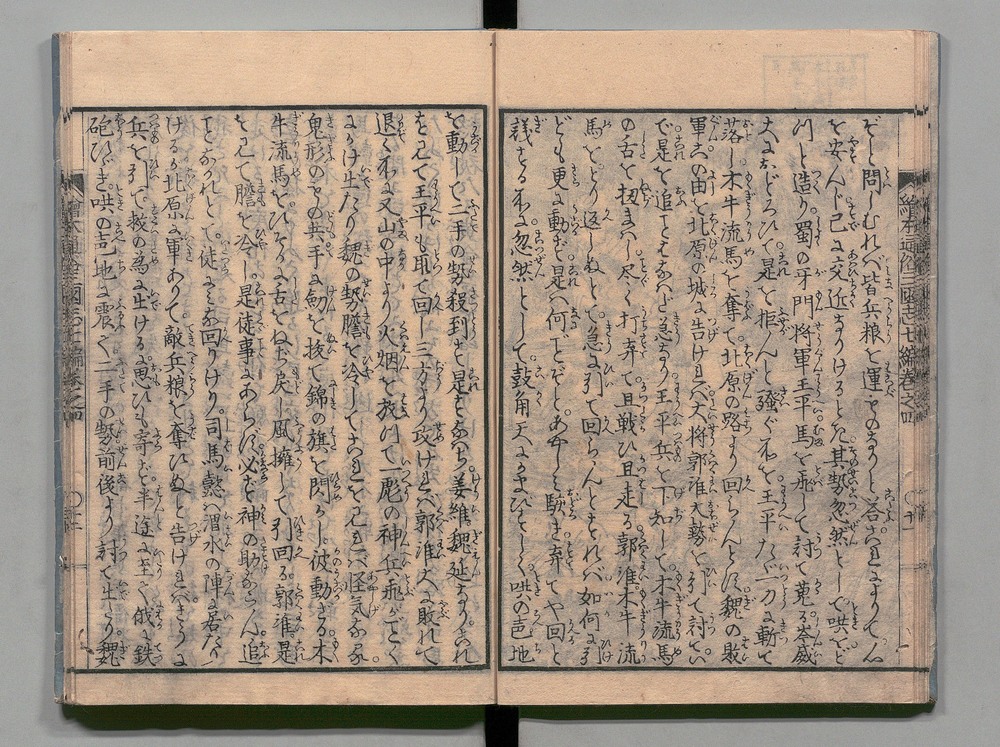 ぞと問しむれバ皆兵粮を運ものなりと答へけるによりて心
を安んじ已に交近よりけるとき其勢忽然として哄をど
つと造り蜀の牙門将軍王平馬を飛して討て蒐る岑威
大におどろひて是を拒んと騒ぐ所を王平たゞ一刀に斬て
落し木牛流馬を奪て北原の路より回らんとす魏の敗
軍此由を北原の城に告けれバ大将郭淮大勢を引て討てい
で是を追ことはなはだ急なり王平兵を下知して木牛流馬
の舌を扭まハし尽く打弃て且戦ひ且走る郭淮木牛流
馬をとり返しぬとて急に引て回らんとすれバ如何に引
ども更に動ず是ハ何ごとぞとあやしみ駈弃てや回と
議する所に忽然として鼓角天にまひゞし哄の声地
を動して二手の勢殺到る是すなハち姜維魏延なり
を見て王平も取て回し三方より攻けれバ郭淮大に敗れて
退く所に又山の中より火烟を放つて一彪の神兵飛がごとく
にかけ出たり魏の勢膽を冷してこれを見れバ怪気なる
鬼形のもの共手に劔を抜て錦の旗を閃かし彼動ざる木
牛流馬をひそかに舌をねぢ戻し風擁して引回る郭淮是
を見て膽を冷し是徒事にあらず必ず神の助ならん追
ことなかれとて徒に引回りけり司馬懿ハ渭水の陣に居た
けるが北原に軍ありて敵兵粮を奪ひぬと告けれバ
兵を引て救の為に出ける思ひも寄ず半途に至て俄に鉄
砲ひゞき哄の声地に震ひ二手の勢前後より討て出たり魏
繪本通俗三國志七編巻之四